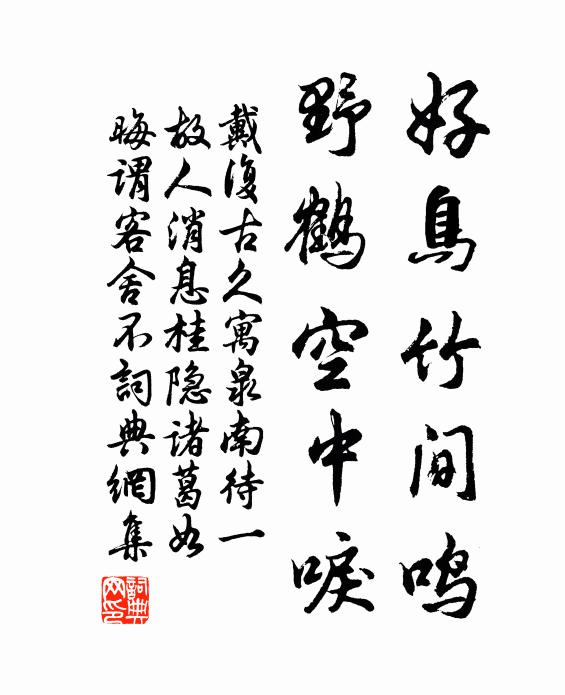 好鳥竹间鸣
野鹤空中唳
戴復古久寓泉南待一
故人消息桂隐诸葛如
晦谓客舍不詞典網集
詞典网印